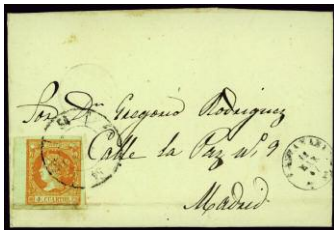 Sor. Dn. Gregorio Rodriguez
Calle la Paz nº 9
Madrid.
4 CUARTOS